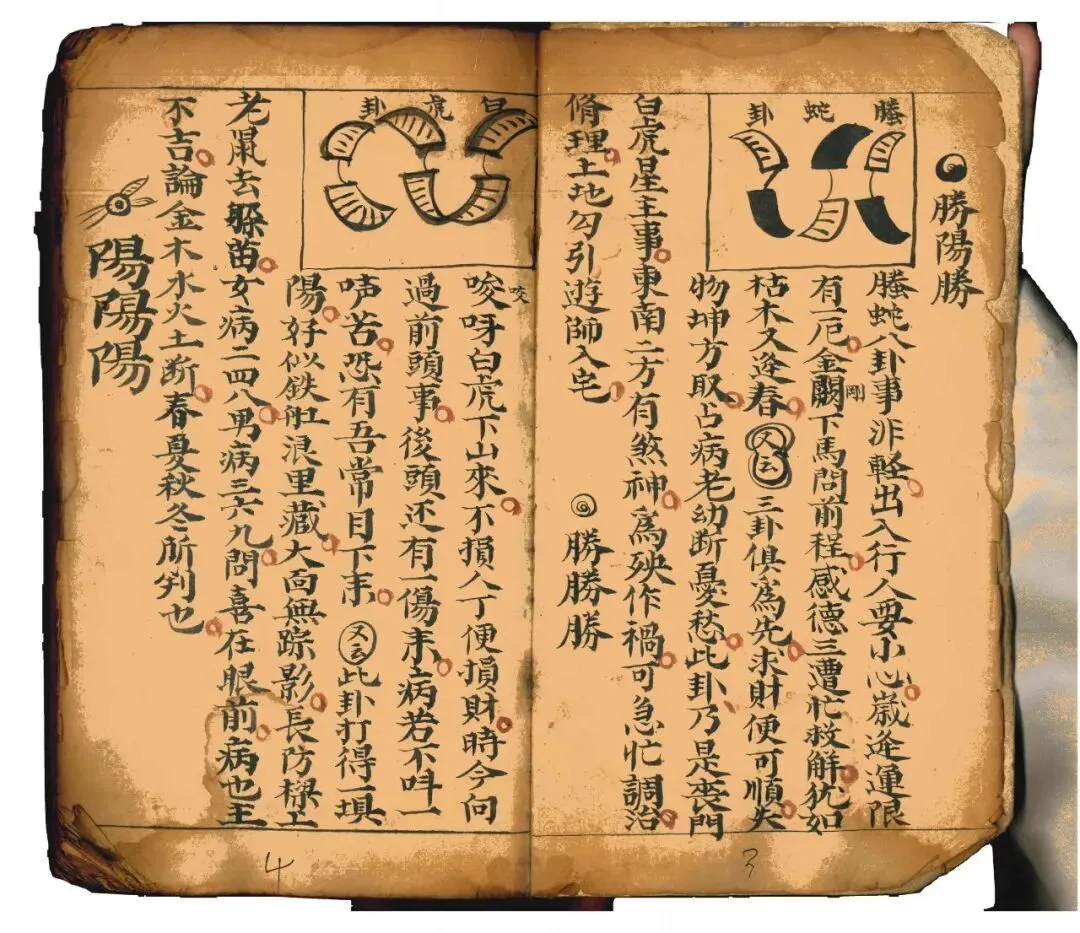 勝陽勝
螣蛇卦
螣蛇八卦事非輕出入行人要小心歲逢運限
有一厄金闕剛下馬問前程感德三遭忙救解犹如
枯木又逢春又云三卦俱為先求財便可順失
物坤方取占病老幼斷憂愁此卦乃是喪門
白虎星主事東南二方有煞神為殃作禍可急忙調治
脩理土地勾引遊師入宅
勝勝勝
白虎卦
唆咬呀白虎下山來不損人丁便損財時今问
過前頭事後頭还有一傷耒病若不呌一
声苦恐有吾常目下耒又云此卦打得一填
陽好似鉄舡浪里藏大面無踪影長防樑上
老鼠去躲苗女病二四八男病三六九問喜在眼前病也主
不吉論金木水火土断春夏秋冬所判也
陽陽陽
3
4